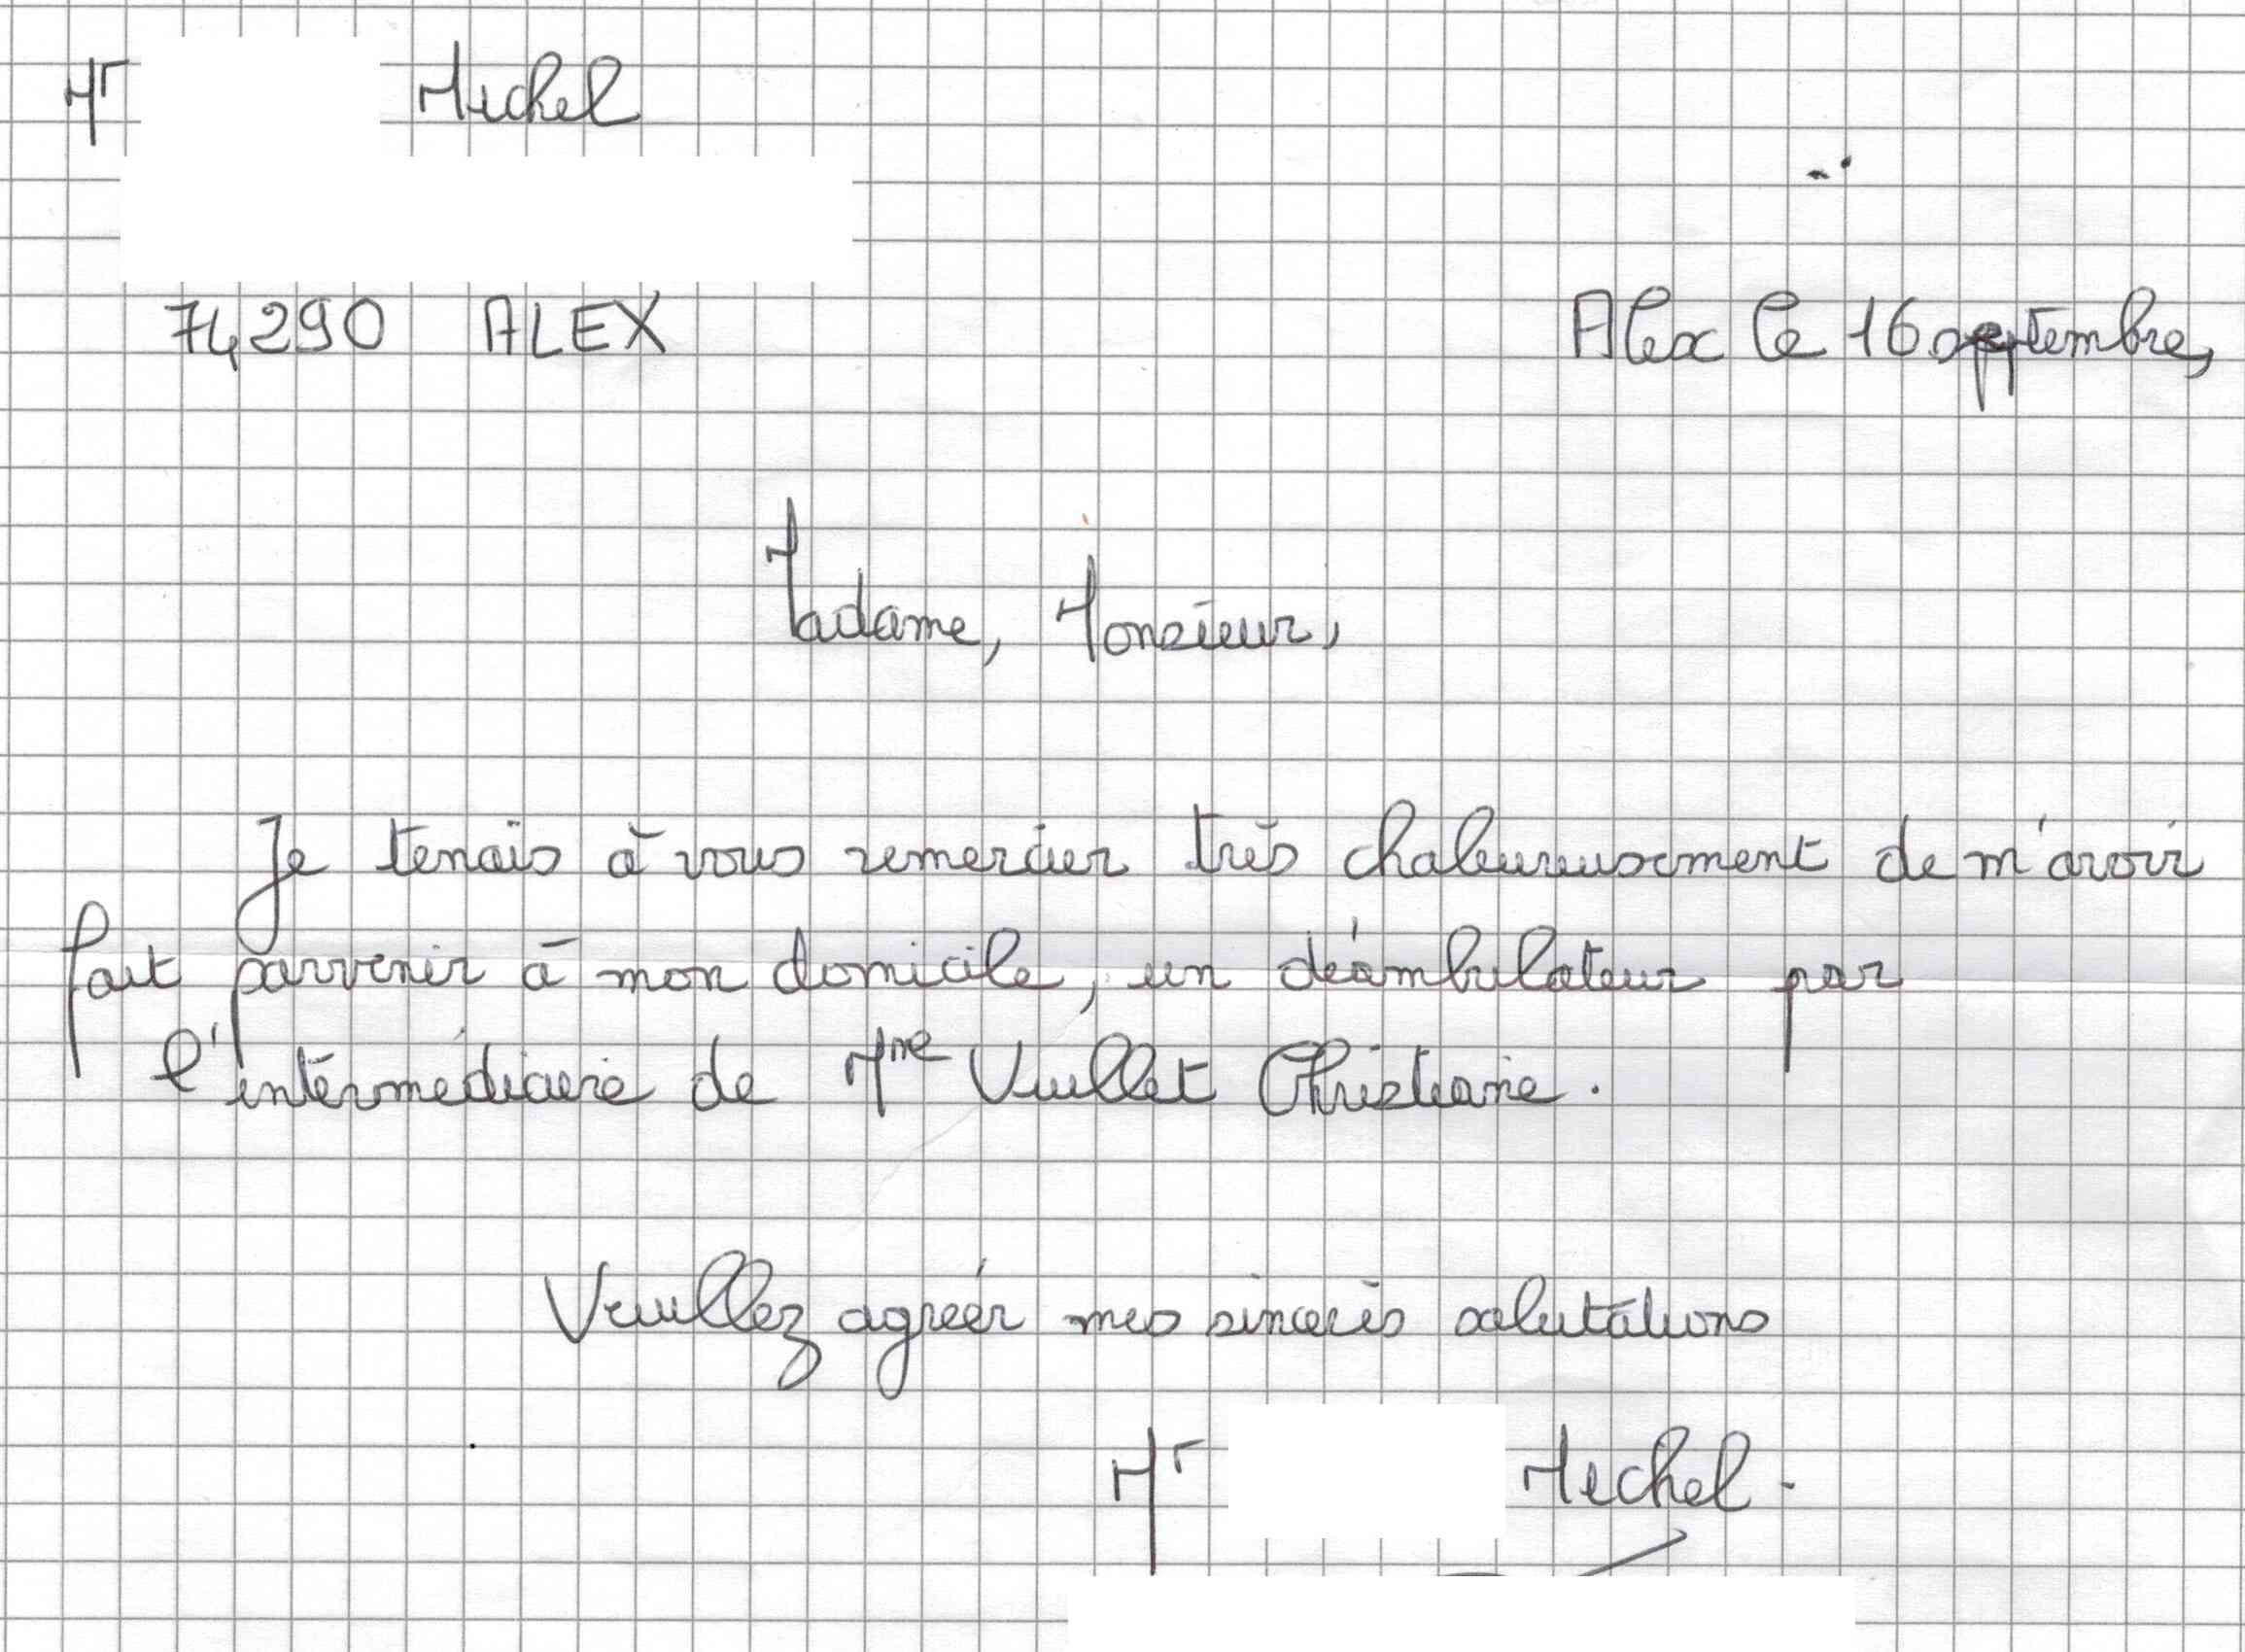 Mr Michel
74290 ALEX
Alex le 16 septembre,
Madame, Monsieur,
Je tenais à vous remercier très chaleureusement de m'avoir
fait parvenir à mon domicile, un déambulateur par
l'intermédiaire de Mme Vuillet Christiane.
Veuillez agréer mes sincères salutations
Mr Michel.